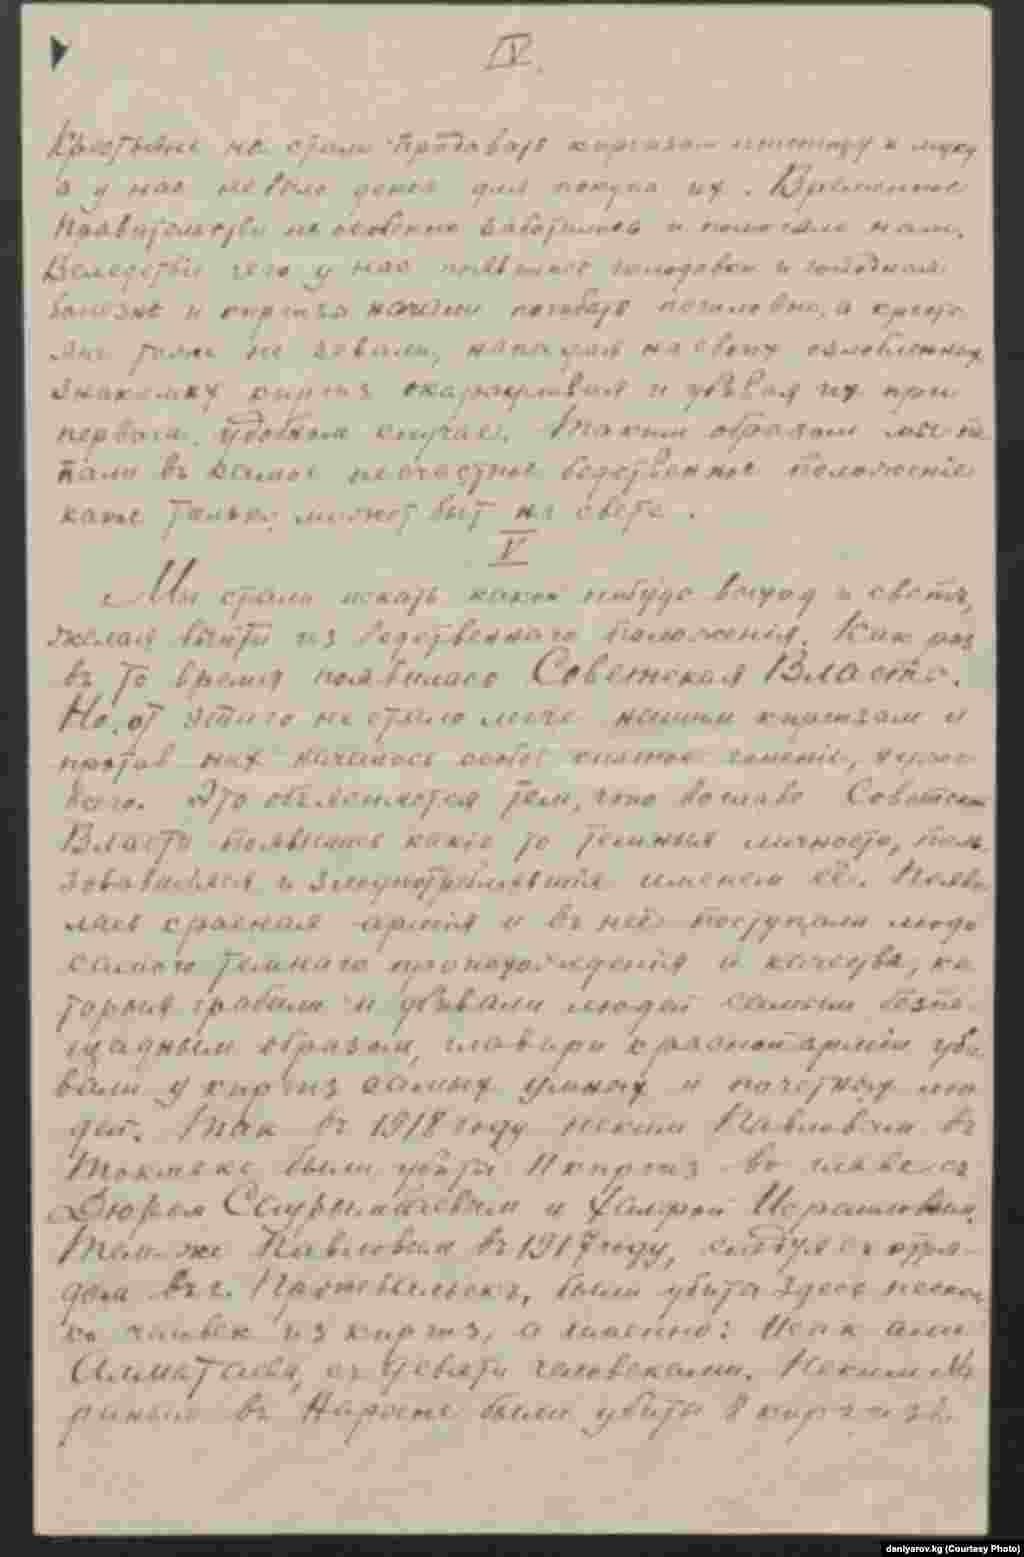 IV.
Крестьяне не стали продавать киргизам пшеницу и муку
а у нас не было денег для покупа их. Временное
Правительство не особенно заботилось и помогало нам.
Вследствiе чего у нас появились голодовки и голодная
болезнь и киргизы начали погибать поголовно, а кресть
яне тоже не зевали, нападая на своих озлобленных
знакомых киргиз окарауливая и убивая их при
первом удобном случае. Таким образом мы по
пали въ самое несчастное бедственное положенiе
какое только может быт на свете.
V
Мы стали искать какой нибудь выход и светъ,
желая выйти из бедственного положенiя. Как раз
въ то время появилась Советская Власть.
Но, от этого не стало легче нашим киргизам и
против них началось особое сильное гоненiе, хуже
всего. Это объясняется тем, что во главе Советской
Власти появились какiе то темныя личности, поль
зовавшiяся и злоупотреблявшiя именем её. Появи
лась красная армiя и въ неё поступали люди
самого темнаго происхожденiя и качества, ко
торыя грабили и убивали людей самым безпо
щадным образом, главари красной армiи уби
вали у киргиз самых умных и почетных лю
дей. Так въ 1918 году неким Павловым въ
Токмаке были убиты киргиз во главе съ
Дюром Саурымбаевым и
Там же Павловым въ 1917 году, следуя съ отря-
дом въ г. Пржевальскъ, были убиты здесь несколь
ко человек из киргиз, а именно:
Алматаева, съ девяти человеками. Неким
въ Нарыне были убиты 8 киргизъ.
daniyarov.kg (Courtesy Photo)